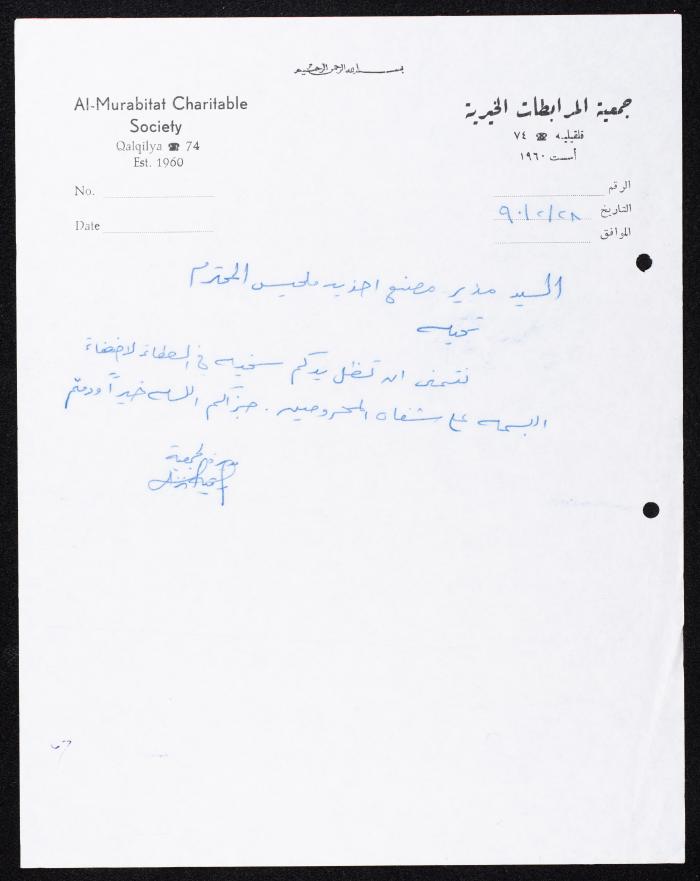 بسم الله الرحمن الرحيم
Al-Murabitat Charitable
Society
Qalqilya ☎ 74
Est. 1960
No.
Date
جمعية المرابطات الخيرية
قلقيليه ☎ ٧٤
أسست ١٩٦٠
الرقم
التاريخ ٩٠/٢/٢٨
الموافق
السيد مدير مصنع احذيه ملحيس المحترم
تحيه
نتمنى ان تظل يدكم سخيه في العطاء لاضفاء
البسمه على شفاه المحرومين. جزاكم الله خيراً ودمتم
الجمعية